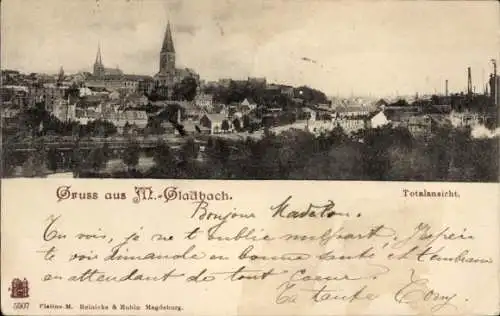 Gruss aus M.-Gladbach.
Totalansicht.
Bonjour Madelon.
Tu vois, je ne t'oublie nulle part. J'espère
te voir dimanche en bonne santé et t'embrasse
en attendant de tout coeur.
Ta tante
5907 Platino-M. Reinicke & Rubin Magdeburg.